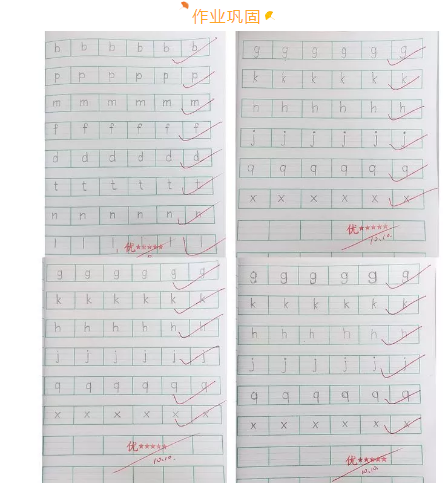 作业巩固
b b b b b b
p p p p p p
m m m m m m
f f f f f f
d d d d d d
t t t t t t
n n n n n n
l l l l l l
优★★★★★
g g g g g g
k k k k k k
h h h h h h
j j j j j j
q q q q q q
x x x x x x
优★★★★★
10.10.
g g g g g g
k k k k k k
h h h h h h
j j j j j j
q q q q q q
x x x x x x
优★★★★★
10.10.
g g g g g g
k k k k k k
h h h h h h
j j j j j j
q q q q q q
x x x x x x
优★★★★★
10.10